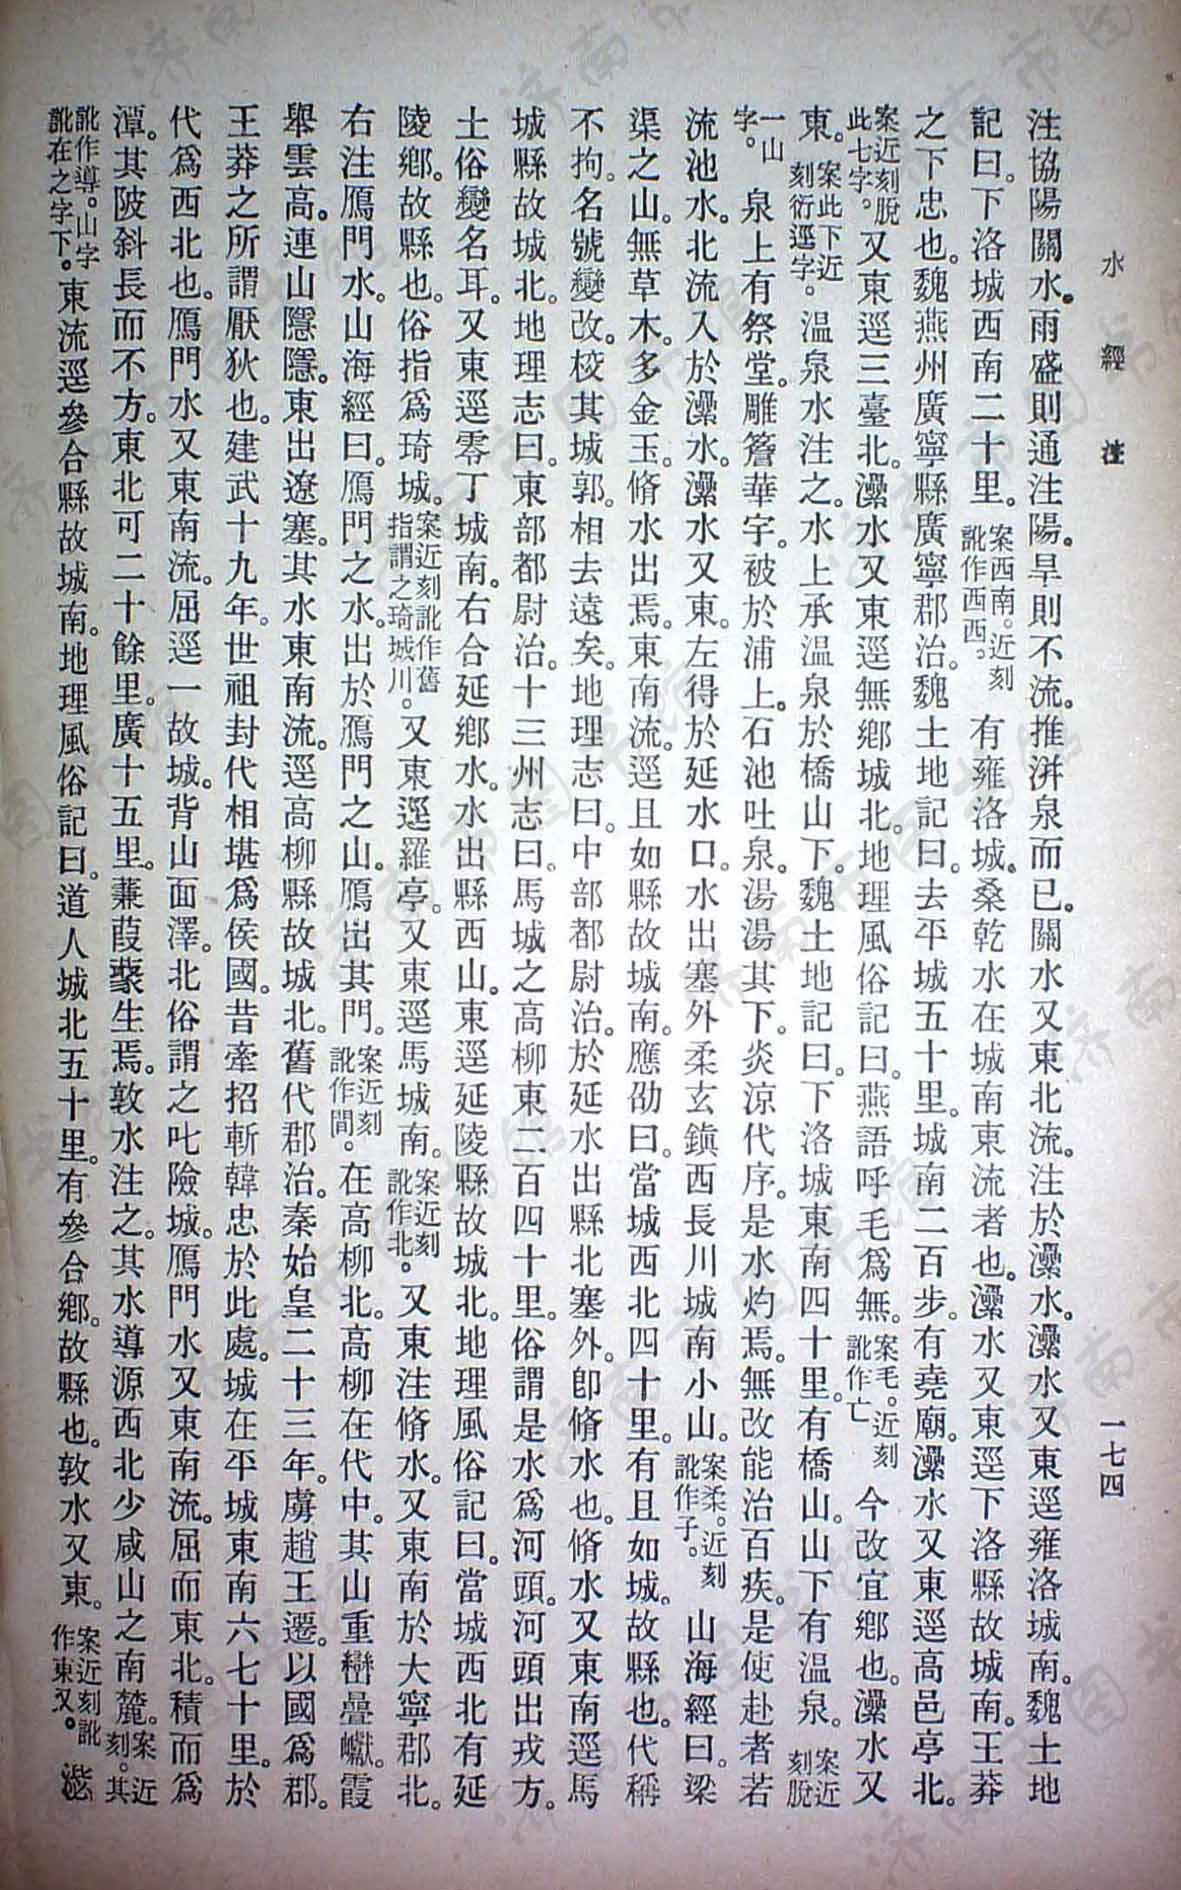 水經注
一七四
注協陽關水。雨盛則通注陽。旱則不流。推洴泉而已。關水又東北流。注於㶟水。㶟水又東逕雍洛城南。魏土地
記曰。下洛城西南二十里。案西南。近刻訛作西西。有雍洛城。桑乾水在城南東流者也。㶟水又東逕下洛縣故城南。王莽
之下忠也。魏燕州廣寧縣廣寧郡治。魏土地記曰。去平城五十里。城南二百步。有堯廟。㶟水又東逕高邑亭北。
案近刻脫此七字。又東逕三臺北。㶟水又東逕無鄉城北。地理風俗記曰。燕語呼毛爲無。案毛。近刻訛作亡今改宜鄉也。㶟水又
東。案此下近刻衍逕字。溫泉水注之。水上承溫泉於橋山下。魏土地記曰。下洛城東南四十里。有橋山。山下有溫泉。案近刻脫
一山字。泉上有祭堂。雕簷華宇。被於浦上。石池吐泉。湯湯其下。炎涼代序。是水灼焉。無改能治百疾。是使赴者若
流池水。北流入於㶟水。㶟水又東。左得於延水口。水出塞外柔玄鎮西長川城南小山。案柔。近刻訛作子。山海經曰。梁
渠之山。無草木。多金玉。脩水出焉。東南流。逕且如縣故城南。應劭曰。當城西北四十里。有且如城。故縣也。代稱
不拘。名號變改。校其城郭。相去遠矣。地理志曰。中部都尉治。於延水出縣北塞外。卽脩水也。脩水又東南逕馬
城縣故城北。地理志曰。東部都尉治。十三州志曰。馬城之高柳東二百四十里。俗謂是水爲河頭。河頭出戎方。
土俗變名耳。又東逕零丁城南。右合延鄉水。水出縣西山。東逕延陵縣故城北。地理風俗記曰。當城西北有延
陵鄉。故縣也。俗指爲琦城。案近刻訛作舊指謂之琦城川。又東逕羅亭。又東逕馬城南。案近刻訛作北。又東注脩水。又東南於大寧郡北。
右注鴈門水。山海經曰。鴈門之水。出於鴈門之山。鴈出其門。案近刻訛作間。在高柳北。高柳在代中。其山重巒疊巘。霞
舉雲高。連山隱隱。東出遼塞。其水東南流。逕高柳縣故城北。舊代郡治。秦始皇二十三年。虜趙王遷。以國爲郡。
王莽之所謂厭狄也。建武十九年。世祖封代相堪爲侯國。昔牽招斬韓忠於此處。城在平城東南六七十里。於
代爲西北也。鴈門水又東南流。屈逕一故城。背山面澤。北俗謂之叱險城。鴈門水又東南流。屈而東北。積而爲
潭。其陂斜長而不方。東北可二十餘里。廣十五里。蒹葭藂生焉。敦水注之。其水導源西北少咸山之南麓。案近刻。其
訛作導。山字訛在之字下。東流逕參合縣故城南。地理風俗記曰。道人城北五十里。有參合鄉。故縣也。敦水又東。案近刻訛作東又。㴲